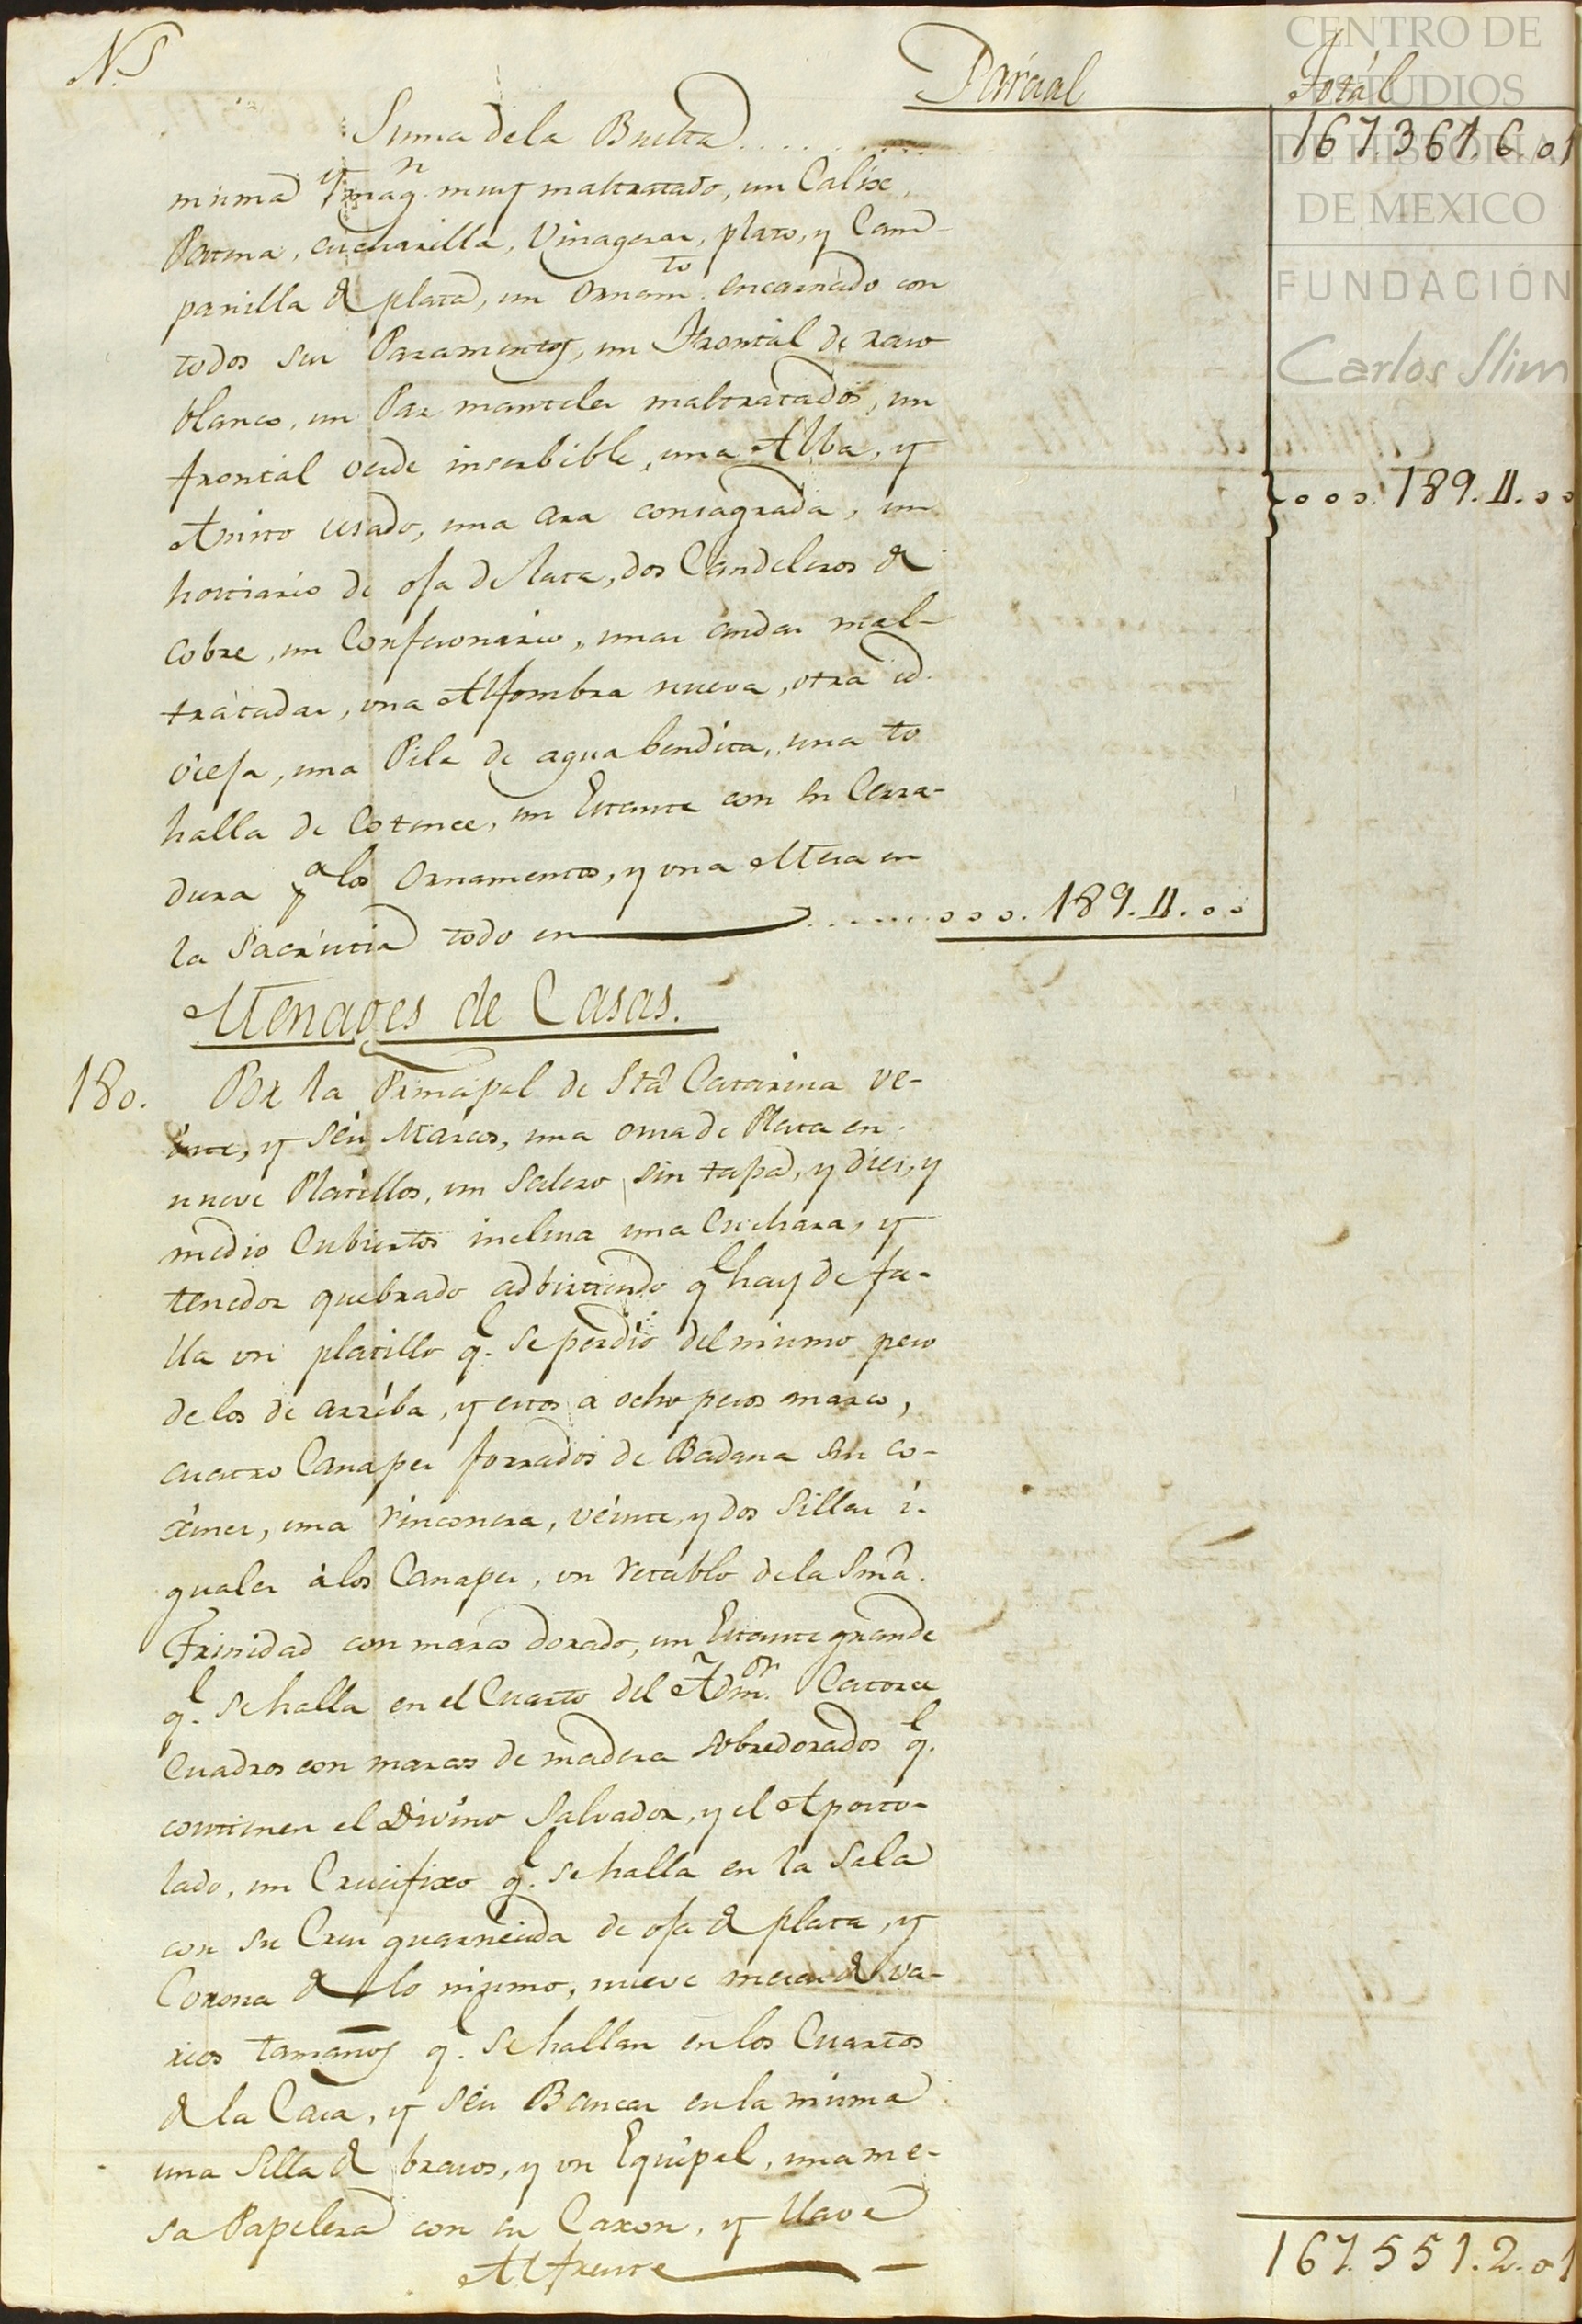 N.S
Parcial
Total
CENTRO DE
ESTUDIOS
DE HISTORIA
DE MEXICO
FUNDACIÓN
Carlos Slim
Suma de la Buelta..........
167.361.6.01
misma Ymag.n muy maltratado, un Calix,
Patena, cucharilla, Vinageras, plato, y Cam-
panilla de plata, un Ornam.to encarnado con
todos sus Paramentos, un Frontal de razo
blanco, un Par manteles maltratados, un
frontal verde inserbible, una Alba, y
Amito usado, una Ara consagrada, un
}ooo.189.II.oo
hostiario de oja de lata, dos Candeleros de
Cobre, un Confesionario, unas andas mal-
tratadas, una Alfombra nueva, otra id.
vieja, una Pila de agua bendita, una to
halla de Cotence, un Estante con su Cerra-
dura p.a los Ornamentos, y una Mesa en
la Sacristia todo en ..........ooo.189.II.oo
Menages de Casas.
180. Por la Principal de Sta Catarina ve-
inte, y seis Marcos, una onza de Plata en
nueve Platillos, un Salero sin tapa, y diez, y
medio Cubiertos inclusa una Cuchara, y
tenedor quebrado adbirtiendo q.e hay de fa-
lla un platillo q.e se perdio del mismo peso
de los de arriba, y estos a ocho pesos marco,
cuatro Canapes forrados de Badana sin co-
xines, una rinconera, veinte, y dos Sillas i-
guales á los Canapes, un retablo de la Sma.
Trinidad con marco dorado, un Estante grande
q.e se halla en el Cuarto del Adm.or Catorce
Cuadros con marcos de madera sobredorados q.e
contienen el Divino Salvador, y el Aposto-
lado, un Crucifixo q.e se halla en la Sala
con su Cruz guarnecida de oja de plata, y
Corona de lo mismo, nueve mesas de va-
rios tamaños q.e se hallan en los Cuartos
de la Casa, y seis Bancas en la misma
una Silla de brazos, y un Equipal, una me-
sa Papelera con su Caxon, y llave
Al frente
167.551.2.01